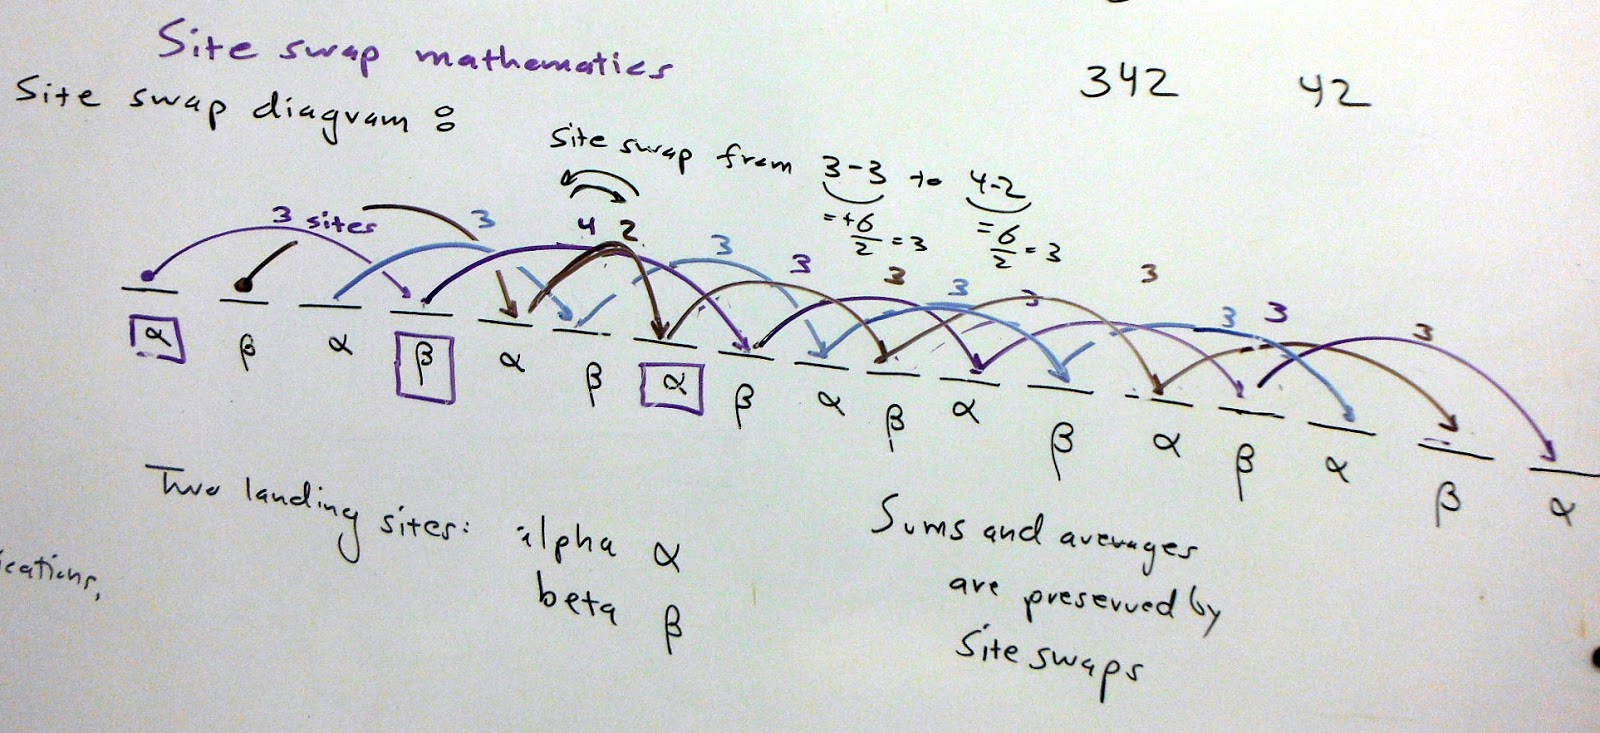 Site swap mathematics
342 42
Site swap diagram:
Site swap from 3-3 to 4-2
=+6/2=3 =6/2=3
3 sites 3 4 2 3 3 3 3 3 3 3 3 3
α β α β α β α β α β α β α β α β α
Two landing sites: alpha α
beta β
Sums and averages
are preserved by
Site swaps
ications,